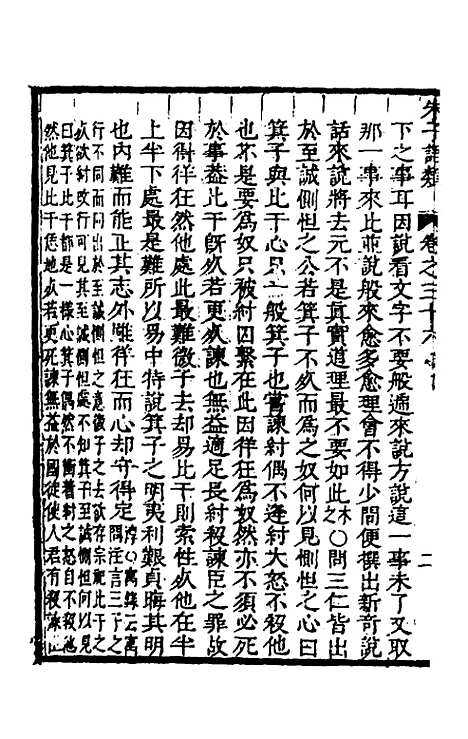 朱子語類 卷之三十六 二
下之事耳因說看文字不要般遞來說方說這一事未了又取
那一事來比並說般來愈多愈理會不得少間便撰出新奇說
話來說將去元不是真實道理最不要如此木之○問三仁皆出
於至誠惻怛之公若箕子不死而為之奴何以見惻怛之心曰
箕子與比干心只一般箕子也嘗諫紂偶不逢紂大怒不殺他
也不是要為奴只被紂囚繫在此因徉狂為奴然亦不須必死
於事蓋比干旣死若更死諫也無益適足長紂殺諫臣之罪故
因得徉狂然他處此最難微子去却易比干則索性死他在半
上半下處最是難所以易中特說箕子之明夷利艱貞晦其明
也內難而能正其志外雖徉狂而心却守得定淳○㝢錄云㝢問注言三子之
行不同而同出於至誠惻怛之意微子之去欲存宗祀比干之
死欲紂改行可見其至誠惻怛處不知箕子至誠惻怛何以見
曰箕子比干都是一樣心箕子偶然不衝着紂之怒自不殺他
然他見比干恁地死若更死諫無益於國徒使人君有殺諫臣